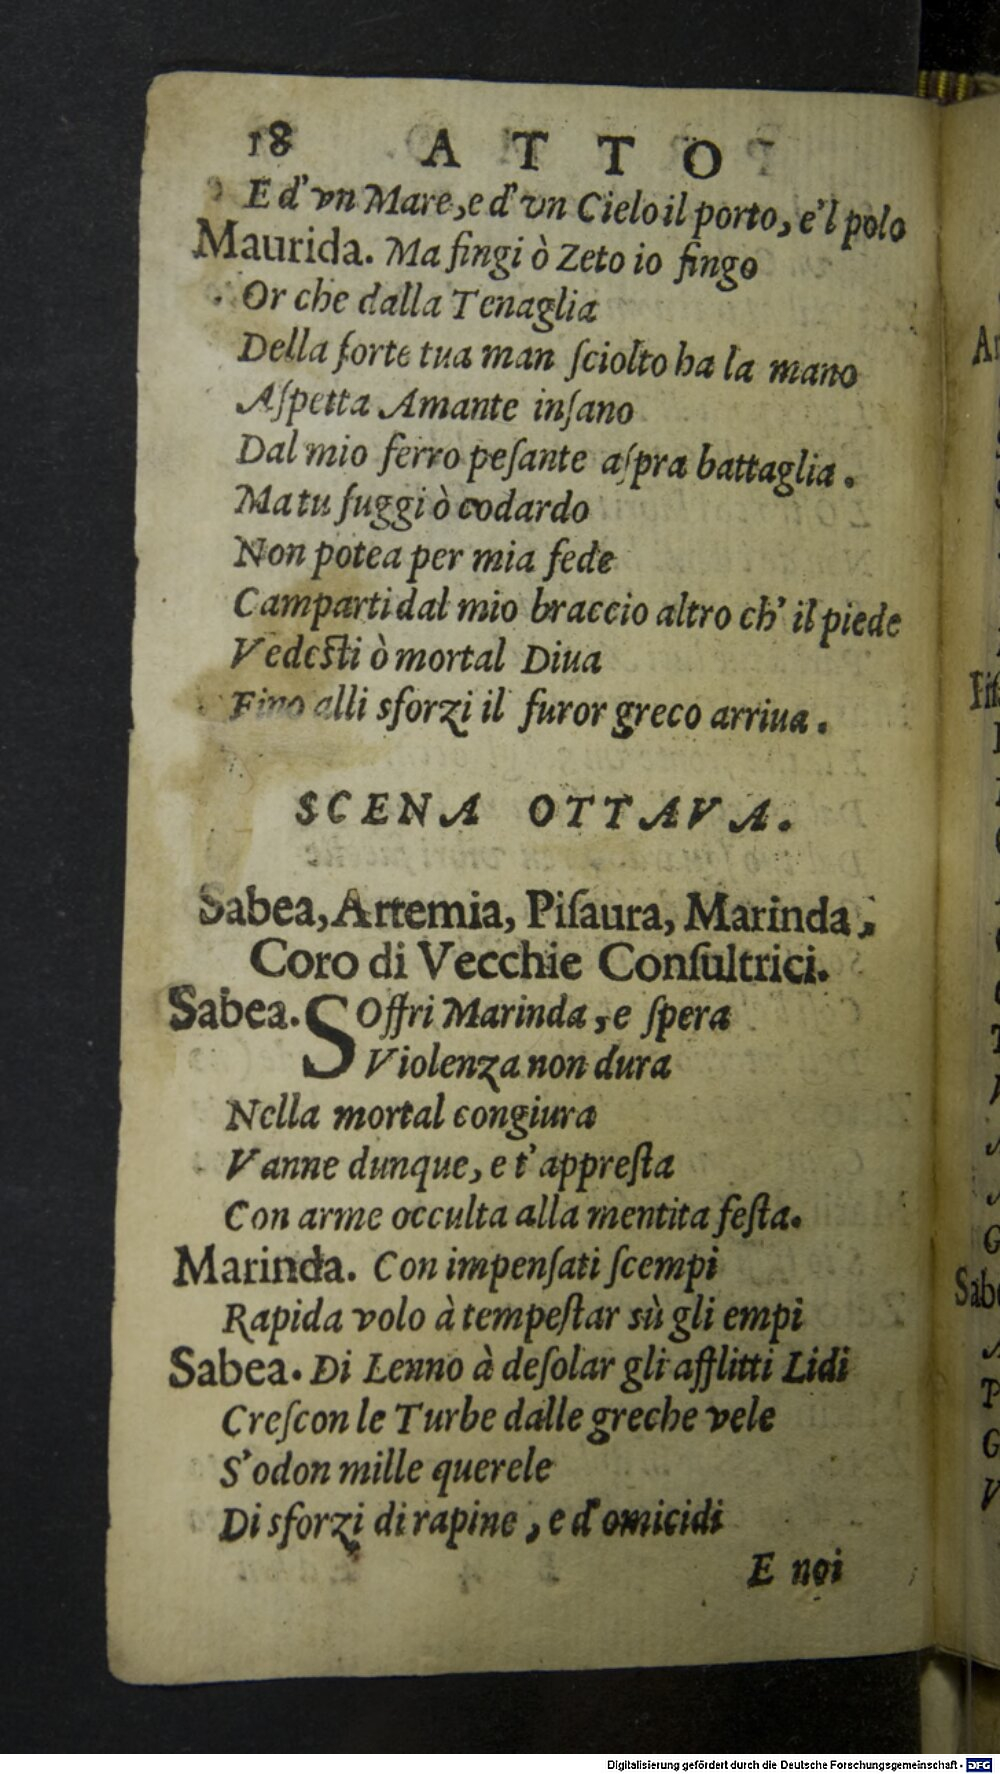 18 ATTO
E d' vn Mare, e d' vn Cielo il porto, e'l polo
Maurida. Ma fingi ò Zeto io fingo
Or che dalla Tenaglia
Della forte tua man ſciolto ha la mano
Aſpetta Amante inſano
Dal mio ferro peſante aſpra battaglia.
Ma tu fuggi ò codardo
Non potea per mia fede
Camparti dal mio braccio altro ch' il piede
Vedeſti ò mortal Diua
Fino alli sforzi il furor greco arriua.
SCENA OTTAVA.
Sabea, Artemia, Piſaura, Marinda,
Coro di Vecchie Conſultrici.
Sabea. SOffri Marinda, e ſpera
Violenza non dura
Nella mortal congiura
Vanne dunque, e t' appreſta
Con arme occulta alla mentita feſta.
Marinda. Con impenſati ſcempi
Rapida volo à tempeſtar sù gli empi
Sabea. Di Lenno à deſolar gli afflitti Lidi
Creſcon le Turbe dalle greche vele
S'odon mille querele
Di sforzi di rapine, e d'omicidi
E noi
Digitalisierung gefördert durch die Deutsche Forschungsgemeinschaft - DFG